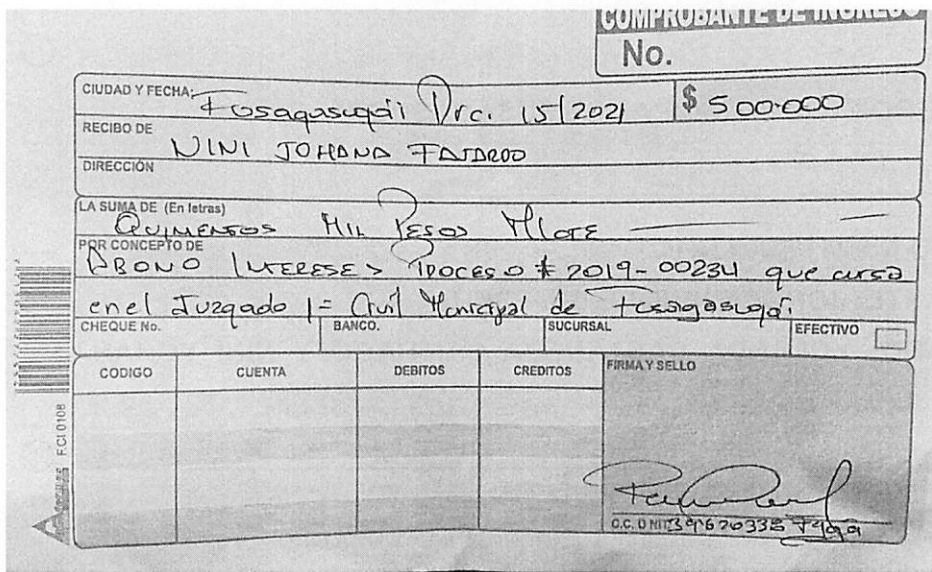 COMPROBANTE DE INGRESO
No.
CIUDAD Y FECHA: Fusagasugái Dic. 15/2021 $ 500.000
RECIBO DE NINI JOHANA FAJARDO
DIRECCIÓN
LA SUMA DE (En letras) QUINIENTOS MIL PESOS M/CTE
POR CONCEPTO DE ABONO INTERESES PROCESO # 2019-00234 que cursa
en el Juzgado 1= Civil Municipal de Fusagasugái
CHEQUE No. BANCO. SUCURSAL EFECTIVO
CODIGO CUENTA DEBITOS CREDITOS FIRMA Y SELLO
C.C. O NIT 39620335
F.CI 0108